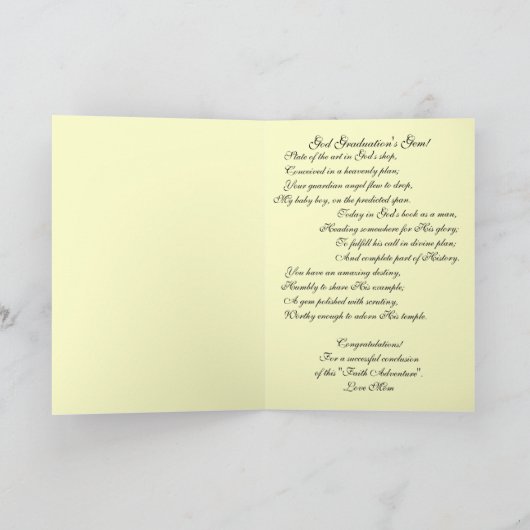 God Graduation's Gem!
State of the art in God's shop,
Conceived in a heavenly plan;
Your guardian angel flew to drop,
My baby boy, on the predicted span.
Today in God's book as a man,
Heading somewhere for His glory;
To fulfill his call in divine plan;
And complete part of History.
You have an amazing destiny,
Humbly to share His example;
A gem polished with scrutiny,
Worthy enough to adorn His temple.
Congratudations!
For a successful conclusion
of this "Faith Adventure".
Love Mom